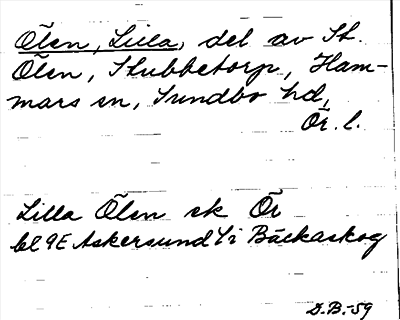 Ölen, Lilla, del av St.
Ölen, Stubbetorp, Ham-
mars sn, Sundbo hd,
Ör. l.
Lilla Ölen ek Ör
bl 9E Askersund 4i Bäckaskog
D.B.-59